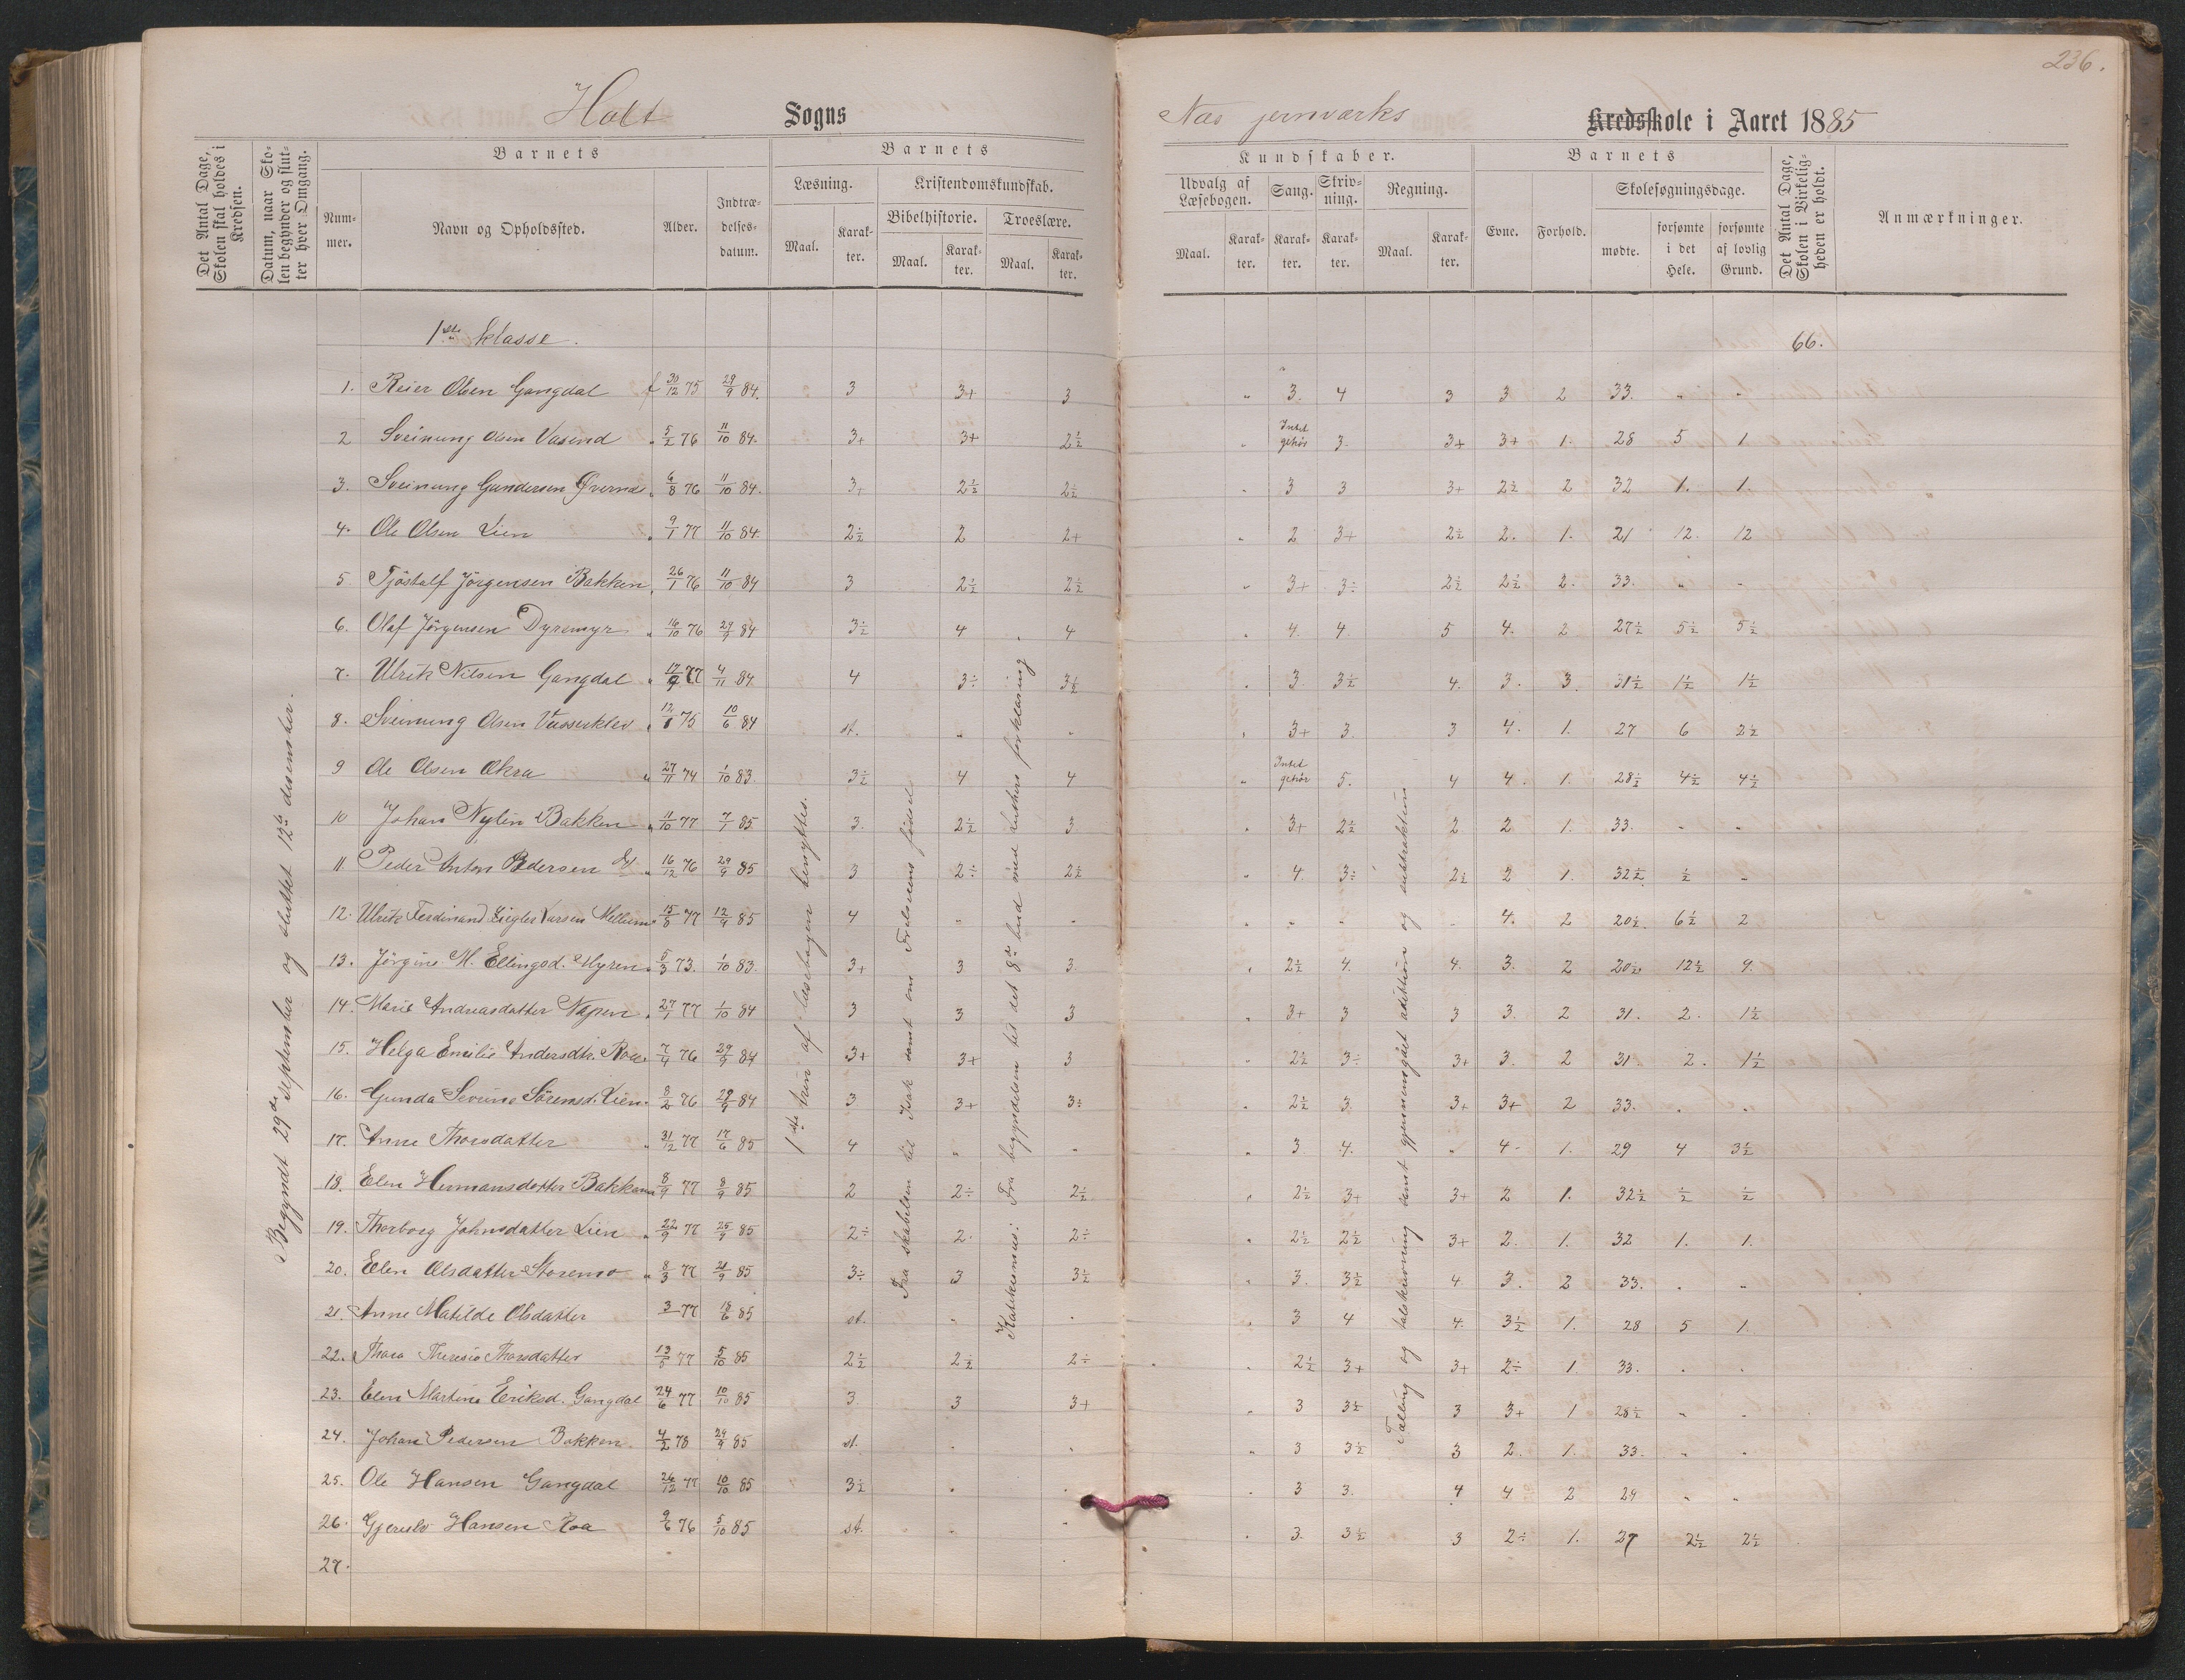 236.
Holt Sogns
Næs jernværks Kredsskole i Aaret 1885
Det Antal Dage, Skolen skal holdes i Kredsen.
Datum, naar Skolen begynder og slutter hver Omgang.
Barnets
Nummer.
Navn og Opholdssted.
Alder.
Indtrædelsesdatum.
Barnets
Læsning.
Maal.
Karakter.
Kristendomskundskab.
Bibelhistorie.
Maal.
Karakter.
Troeslære.
Maal.
Karakter.
Kundskaber.
Udvalg af Læsebogen.
Maal.
Karakter.
Sang.
Karakter.
Skrivning.
Karakter.
Regning.
Maal.
Karakter.
Barnets
Evne.
Forhold.
Skolesøgningsdage.
mødte.
forsømte i det Hele.
forsømte af lovlig Grund.
Det Antal Dage, Skolen i Virkeligheden er holdt.
Anmærkninger.
1ste klasse.
66.
Begyndt 29de september og sluttet 12te desember.
1ste trin af læsebogen benyttes.
Fra skabelsen til Isak samt om Frelserens fødsel
Katekismus: Fra begyndelsen til det 8de bud med Luthers forklaring
Tælling og talskrivning samt gjennemgået adition og subtraktion
1. Reier Olsen Gangdal f 30/12 75 29/9 84. 3 3+ 3 " 3. 4 3 3 2 33. " "
2 Sveinung Olsen Vasend " 5/2 76 11/10 84. 3+ 3+ 2½ " Intet gehör 3. 3+ 3+ 1. 28 5 1
3. Sveinung Gundersen " 6/8 76 11/10 84. 3+ 2½ 2½ " 3 3 3+ 2½ 2 32 1. 1.
4. Ole Olsen Lien " 9/1 77 11/10 84. 2½ 2 2+ " 2 3+ 2½ 2. 1. 21 12. 12
5 Tjöstolf Jörgensen Bakken " 26/1 76 11/10 84 3 2½ 2½ " 3+ 3÷ 2½ 2½ 2. 33. " "
6. Olaf Jörgensen Dyremyr " 16/10 76 29/9 84 3½ 4 " 4 " 4. 4. 5 4. 2 27½ 5½ 5½
7. Ulrik Nilsen Gangdal " 12/9 77 4/11 84. 4 3÷ 3½ " 3. 3½ 4. 3. 3. 31½ 1½ 1½
8. Sveinung Olsen Vasserklev " 12/8 75 10/6 84 st. " " " 3+ 3. 3 4. 1. 27 6 2½
9 Ole Olsen Økra " 27/11 74 1/10 83. 3½ 4 4 " Intet gehör 5. 4 4. 1. 28½ 4½ 4½
10 Johan Nylin Bakken " 11/10 77 7/1 85 3. 2½ 3 " 3+ 2½ 2 2 1. 33. " "
11 Peder Anton Pedersen " 16/12 76 29/9 85 3 2÷ 2½ " 4. 3÷ 2½ 2 1. 32½ ½ "
12. Ulrik Ferdinand Ziegler Larsen Mellum " 15/8 77 12/9 85 4 " " " " " " 4. 2 20½ 6½ 2
13. Jörgine M. Ellingsd. Myren " 5/3 73. 1/10 83. 3+ 3 3 " 2½ 4. 4. 3. 2 20½ 12½ 9.
14. Marie Andreasdatter Næsen " 27/1 77 1/10 84 3 3 3 " 3+ 3 3 3. 2 31. 2. 1½
15. Helga Emilie Andersdtr. Roa " 7/4 76 29/9 84 3+ 3+ 3 " 2½ 3÷ 3+ 3. 2 31. 2. 1½
16. Gunda Severine Sörensd. Lien " 8/2 76 29/9 84 3 3+ 3÷ " 2½ 3. 3+ 3+ 2 33. " "
17. Anne Thorsdatter " 31/12 77 17/6 85 4 " " " 3 4. " 4- 1. 29 4 3½
18. Elen Hermansdatter Bakkene 8/9 77 8/9 85 2 2÷ 2½ " 2½ 3+ 3+ 2 1. 32½ ½ ½
19. Thorborg Johnsdatter Lien " 22/9 77 25/9 85 2÷ 2. 2÷ " 2½ 2½ 3+ 2. 1. 32 1. 1.
20. Elen Olsdatter Storemo " 8/3 77 21/9 85 3÷ 3 3½ " 3. 3½ 4 3. 2 33. " "
21. Anne Matilde Olsdatter 3 77 18/6 85 st. " " " 3 4 4. 3½ 1. 28 5 1.
22. Thora Theresie Thorsdatter 13/5 77 5/10 85 2½ 2½ 2÷ " 2½ 3+ 3+ 2÷ 1. 33. " "
23. Elen Martine Eriksd. Gangdal 24/6 77 10/10 85 3. 3 3+ " 3 3½ 3 3+ 1 28½ " "
24. Johan Pedersen Bakken. 4/2 78 29/9 85 st. " " " 3 3½ 3 2. 1. 33. " "
25. Ole Hansen Gangdal 26/12 77 10/10 85 3½ " " " 3 3. 4 4 2 29 " "
26. Hansen Roa 9/6 76 5/10 85 st. " " " 3. 3½ 3 2÷ 1. 27 2½ 2½
27.